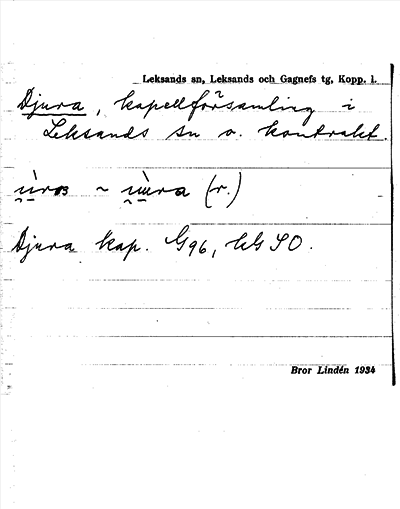 Leksands sn, Leksands och Gagnefs tg, Kopp. l.
Djura, kapellförsamling i
Leksands sn o. kontrakt.
(r.)
Djura kap. G96,
Bror Lindén 1934